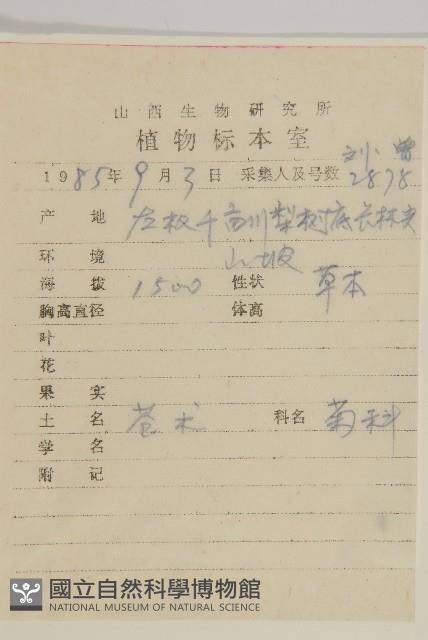 山西生物研究所
植物标本室
刘小曾
1985年9月3日 采集人及号数 2878
产 地 左权千亩川梨树底长林
环 境 山坡
海 拔 1500 性状 草本
胸高直径 体高
叶
花
果 实
土 名 苍术 科名 菊科
学 名
附 记
國立自然科學博物館
NATIONAL MUSEUM OF NATURAL SCIENCE